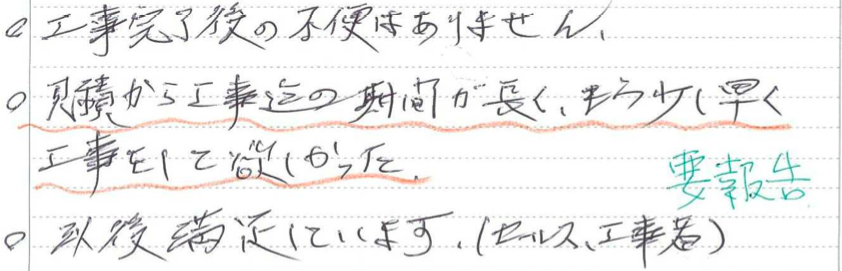 ○ 工事完了後の不便はありません、
○ 見積から工事迄の期間が長く、もう少し早く
工事をして欲しかった。
要報告
○ 以後満足しています。(セールス、工事者)